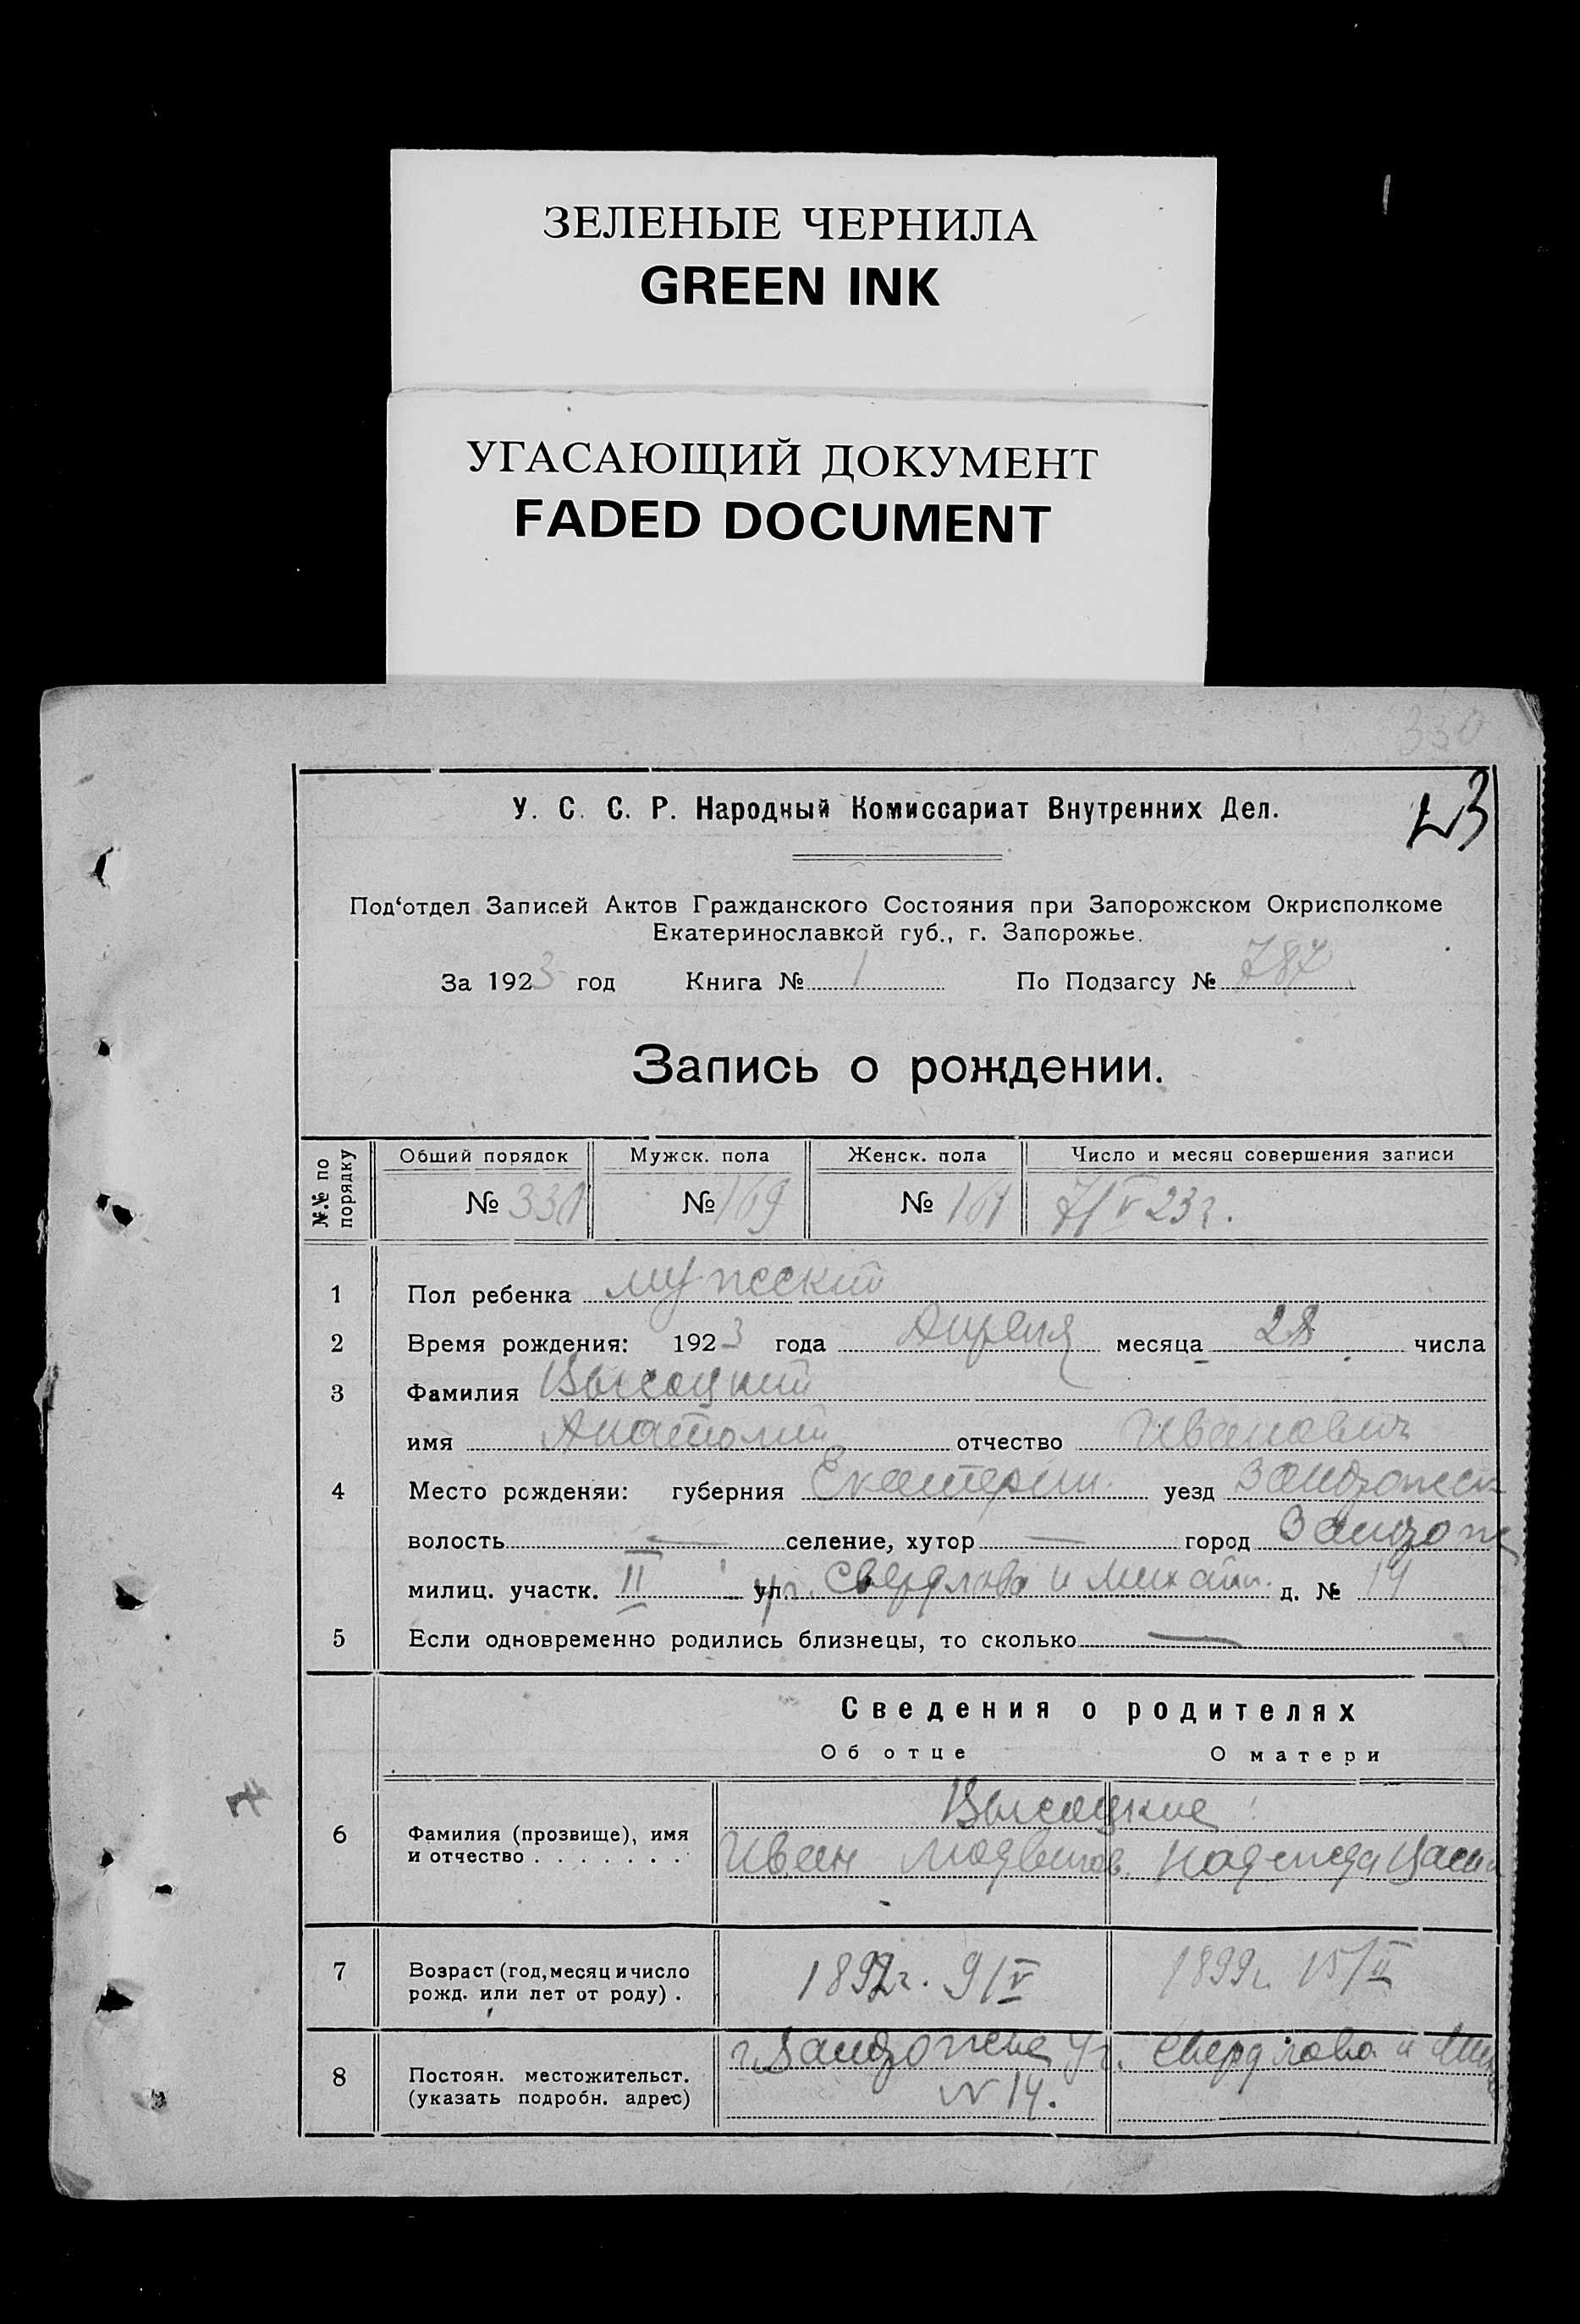 ЗЕЛЕНЫЕ ЧЕРНИЛА
GREEN INK
УГАСАЮЩИЙ ДОКУМЕНТ
FADED DOCUMENT
330
У. С. С. Р. Народный Комиссариат Внутренних Дел.
Под‘отдел Записей Актов Гражданского Состояния при Запорожском Окрисполкоме
Екатеринославкой губ., г. Запорожье.
За 1923 год Книга № 1 По Подзагсу № 787
Запись о рождении.
№№ по порядку Общий порядок Мужск. пола Женск. пола Число и месяц совершения записи
№ 330 № 169 № 161 7/V 23г.
1 Пол ребенка мужеский
2 Время рождения: 1923 года Апреля месяца 28 числа
3 Фамилия Высоцкий
имя Анатолий отчество Иванович
4 Место рожденяи: губерния Екатерин. уезд Запорожск
волость — селение, хутор — город Запорож
милиц. участк. II ул. уг. Свердлова и Михайл. д. № 14
5 Если одновременно родились близнецы, то сколько —
Сведения о родителях
Об отце О матери
6 Фамилия (прозвище), имя
и отчество . . . . . . .
Высоцкие
Иван Людвигов. Надежда
7 Возраст (год, месяц и число
рожд. или лет от роду) .
1892г. 9/V 1899г. 15/II
8 Постоян. местожительст.
(указать подробн. адрес)
г. Запорожье уг. Свердлова и
№ 14.